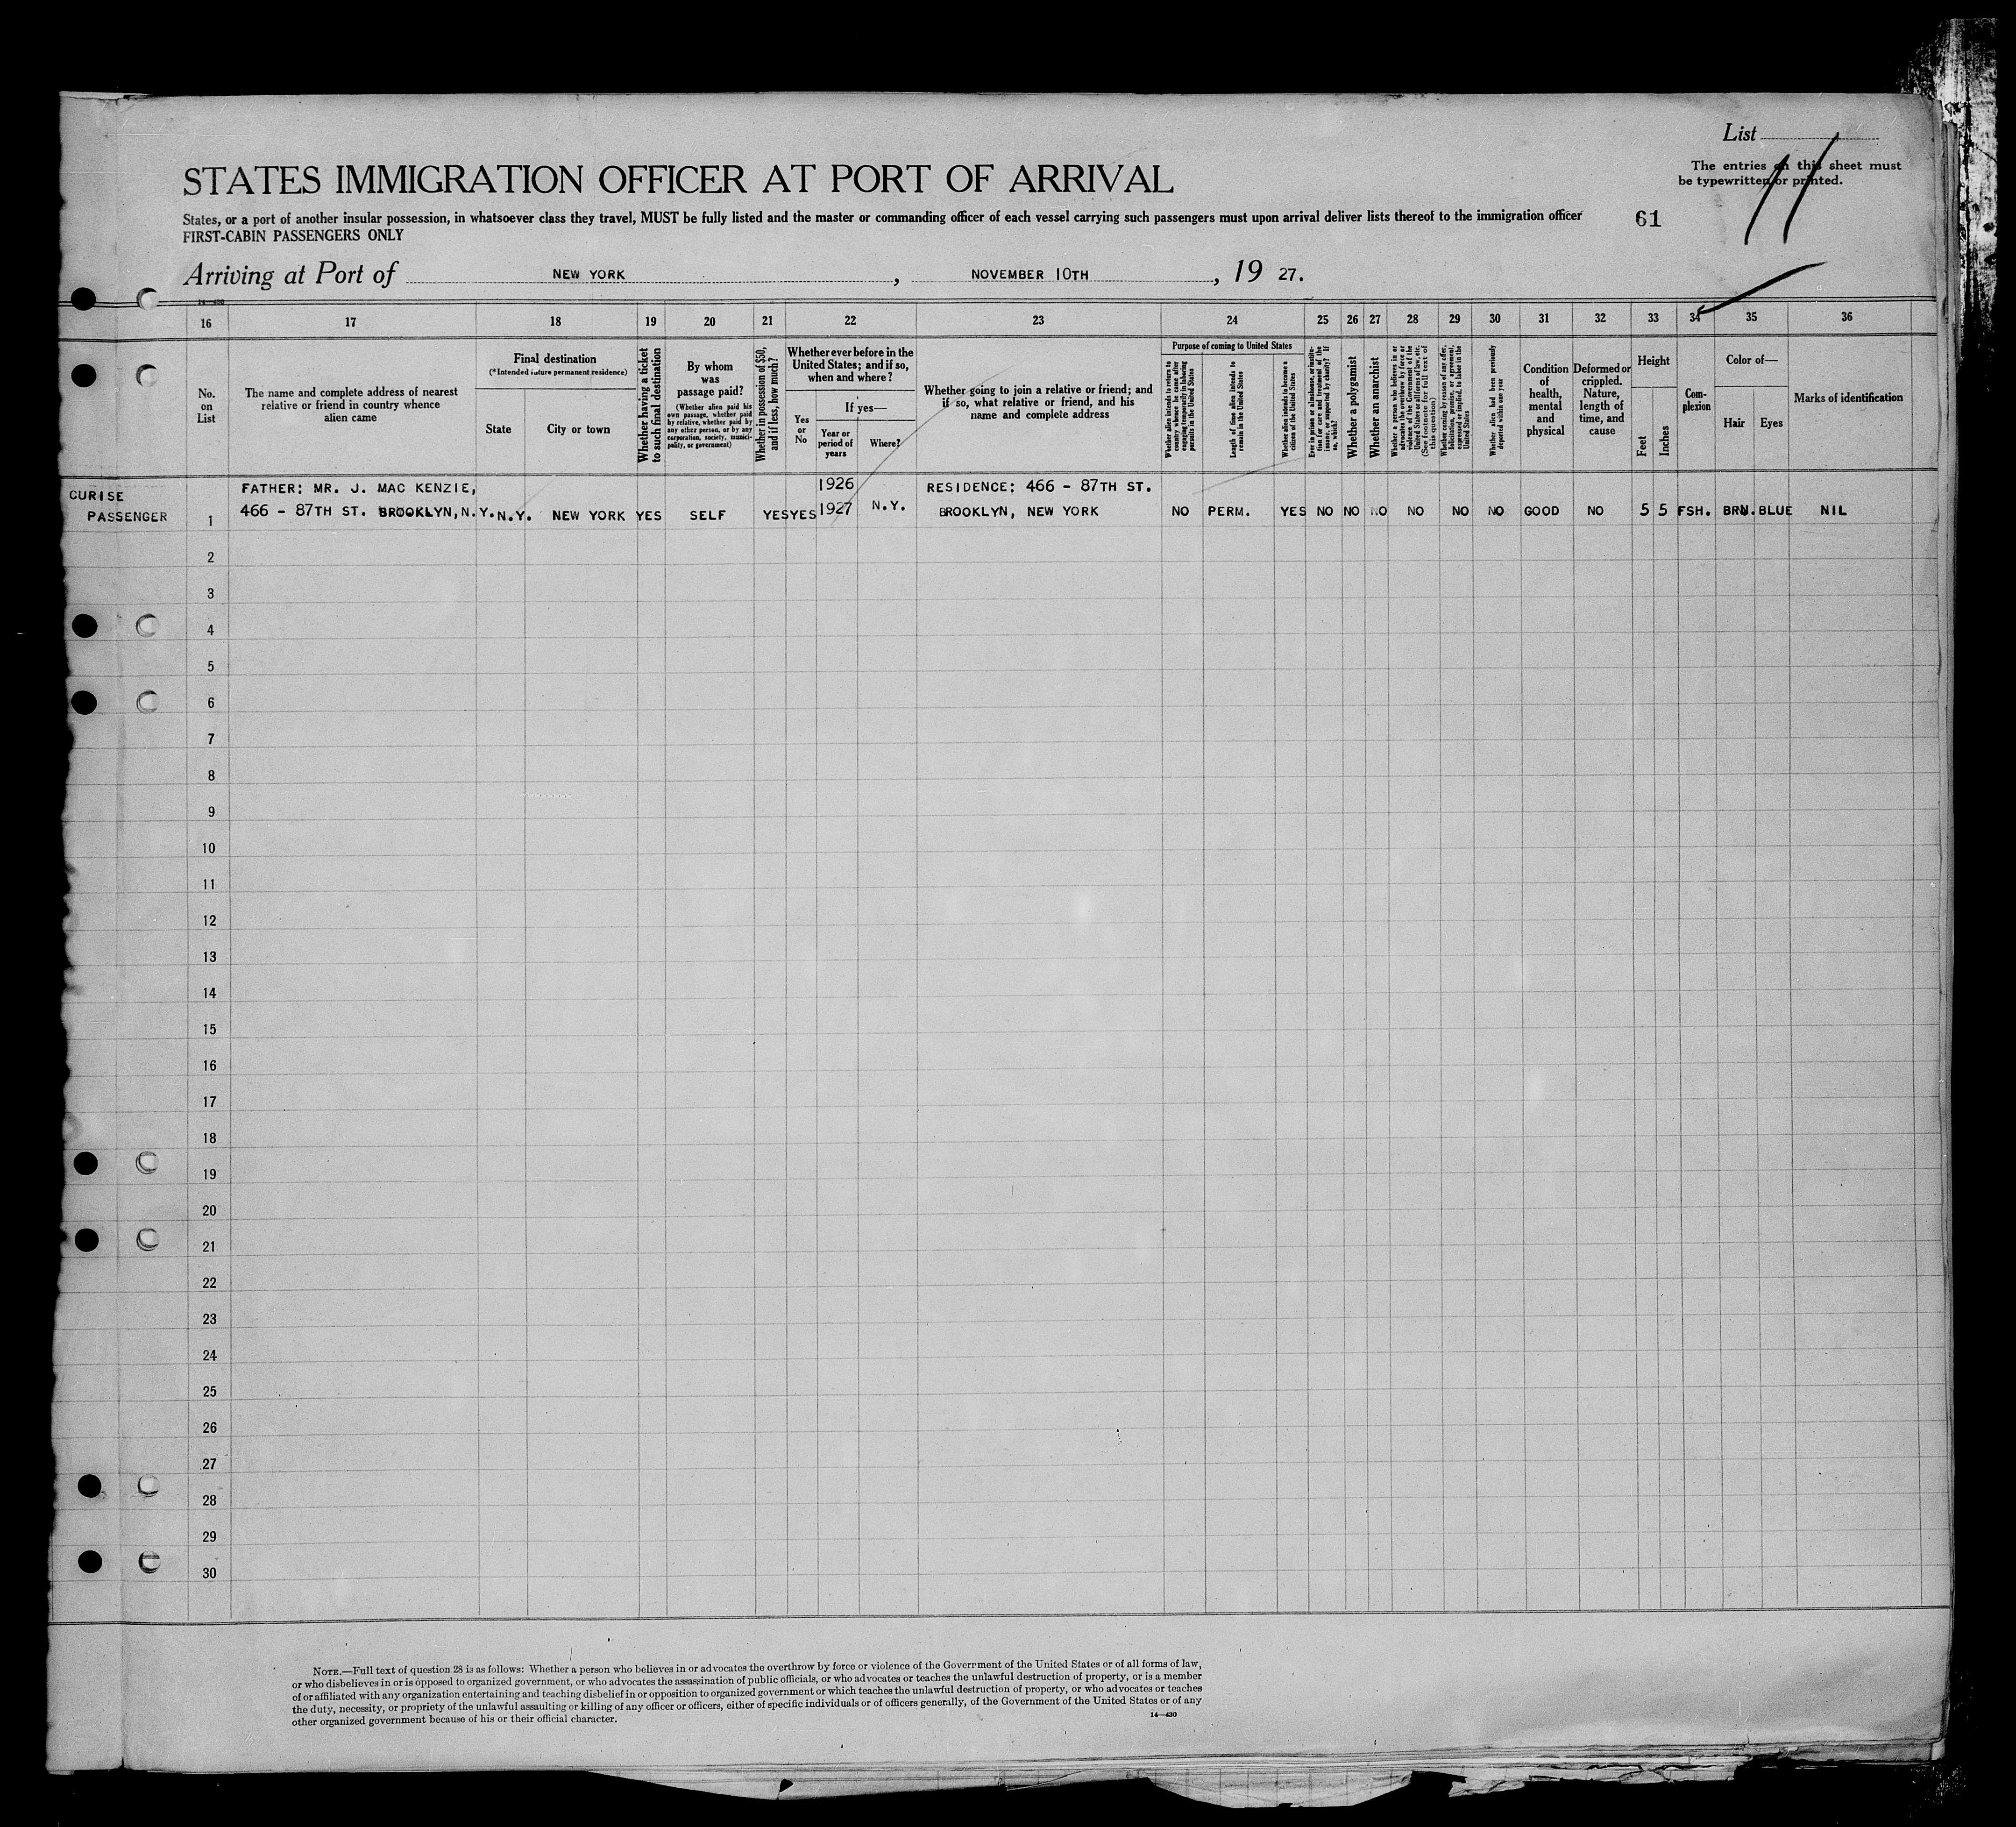 List 11
The entries on this sheet must
be typewritten or printed.
STATES IMMIGRATION OFFICER AT PORT OF ARRIVAL
States, or a port of another insular possession, in whatsoever class they travel, MUST be fully listed and the master or commanding officer of each vessel carrying such passengers must upon arrival deliver lists thereof to the immigration officer
61
FIRST-CABIN PASSENGERS ONLY
Arriving at Port of NEW YORK, NOVEMBER 10TH, 19 27.
14-430
16 17 18 19 20 21 22 23 24 25 26 27 28 29 30 31 32 33 34 35 36
No.
on
List
The name and complete address of nearest
relative or friend in country whence
alien came
Final destination
(*Intended future permanent residence)
State
City or town
Whether having a ticket
to such final destination
By whom
was
passage paid?
(Whether alien paid his
own passage, whether paid
by relative, whether paid by
any other person, or by any
corporation, society, munici-
pality, or government)
Whether in possession of $50,
and if less, how much?
Whether ever before in the
United States; and if so,
when and where?
Yes
or
No
If yes—
Year or
period of
years
Where?
Whether going to join a relative or friend; and
if so, what relative or friend, and his
name and complete address
Purpose of coming to United States
Whether alien intends to return to
country whence he came after
engaging temporarily in laboring
pursuits in the United States
Length of time alien intends to
remain in the United States
Whether alien intends to become a
citizen of the United States
Ever in prison or almshouse, or institu-
tion for care and treatment of the
insane, or supported by charity? If
so, which?
Whether a polygamist
Whether an anarchist
Whether a person who believes in or
advocates the overthrow by force or
violence of the Government of the
United States or all forms of law, etc.
(See footnote for full text of
this question)
Whether coming by reason of any offer,
solicitation, promise, or agreement,
expressed or implied, to labor in the
United States
Whether alien had been previously
deported within one year
Condition
of
health,
mental
and
physical
Deformed or
crippled.
Nature,
length of
time, and
cause
Height
Feet
Inches
Com-
plexion
Color of—
Hair
Eyes
Marks of identification
CURISE
PASSENGER
FATHER: MR. J. MAC KENZIE, 1926 RESIDENCE: 466 - 87TH ST.
1 466 - 87TH ST. BROOKLYN, N.Y. N.Y. NEW YORK YES SELF YES YES 1927 N.Y. BROOKLYN, NEW YORK NO PERM. YES NO NO NO NO NO NO GOOD NO 5 5 FSH. BRN. BLUE NIL
2
3
4
5
6
7
8
9
10
11
12
13
14
15
16
17
18
19
20
21
22
23
24
25
26
27
28
29
30
NOTE.—Full text of question 28 is as follows: Whether a person who believes in or advocates the overthrow by force or violence of the Government of the United States or of all forms of law,
or who disbelieves in or is opposed to organized government, or who advocates the assassination of public officials, or who advocates or teaches the unlawful destruction of property, or is a member
of or affiliated with any organization entertaining and teaching disbelief in or opposition to organized government or which teaches the unlawful destruction of property, or who advocates or teaches
the duty, necessity, or propriety of the unlawful assaulting or killing of any officer or officers, either of specific individuals or of officers generally, of the Government of the United States or of any
other organized government because of his or their official character.
14—430